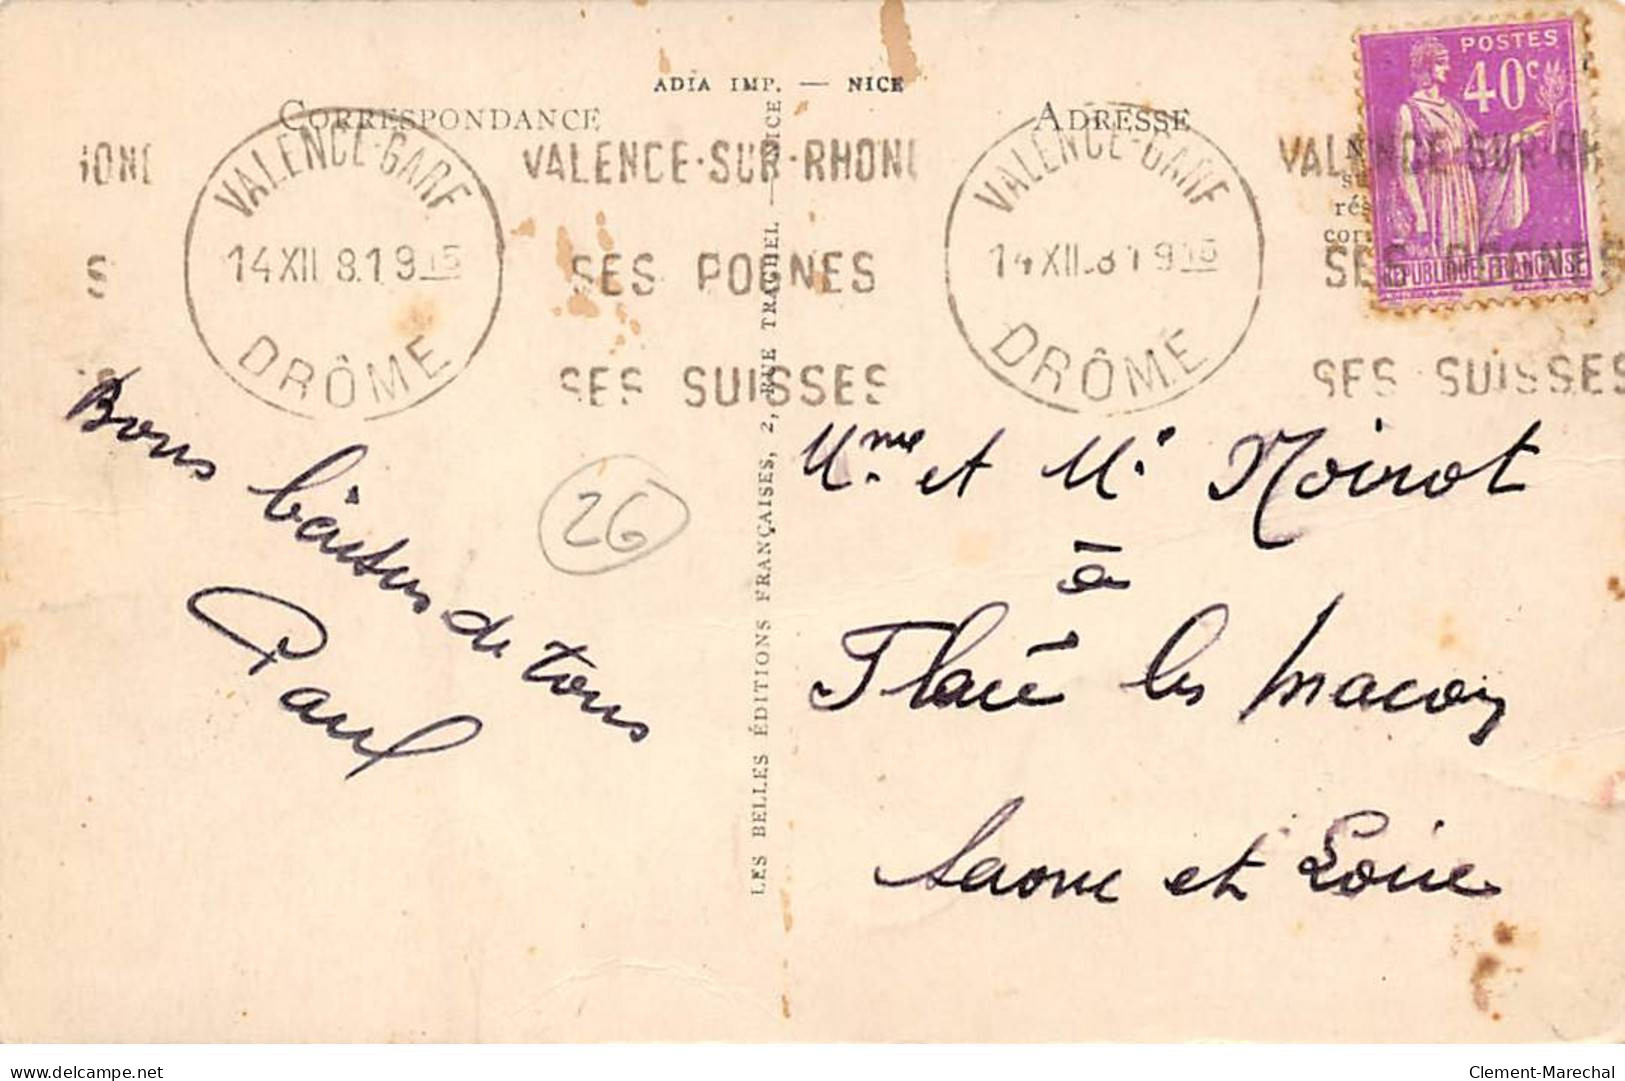 ADIA IMP. — NICE
CORRESPONDANCE
ADRESSE
VALENCE-GARE
14 XII 8.19 15
DRÔME
VALENCE-SUR-RHONE
SES POGNES
SES SUISSES
VALENCE-GARE
DRÔME
VALENCE-SUR-RH
SES POGNES
SES SUISSES
POSTES
40c
REPUBLIQUE FRANÇAISE
LES BELLES ÉDITIONS FRANÇAISES, 2, RUE TRACHEL — NICE
Bons baisers de tous
Paul
26
Mme et Mr Noirot
à
Flacé les Macon
Saone et Loire
Clement-Marechal